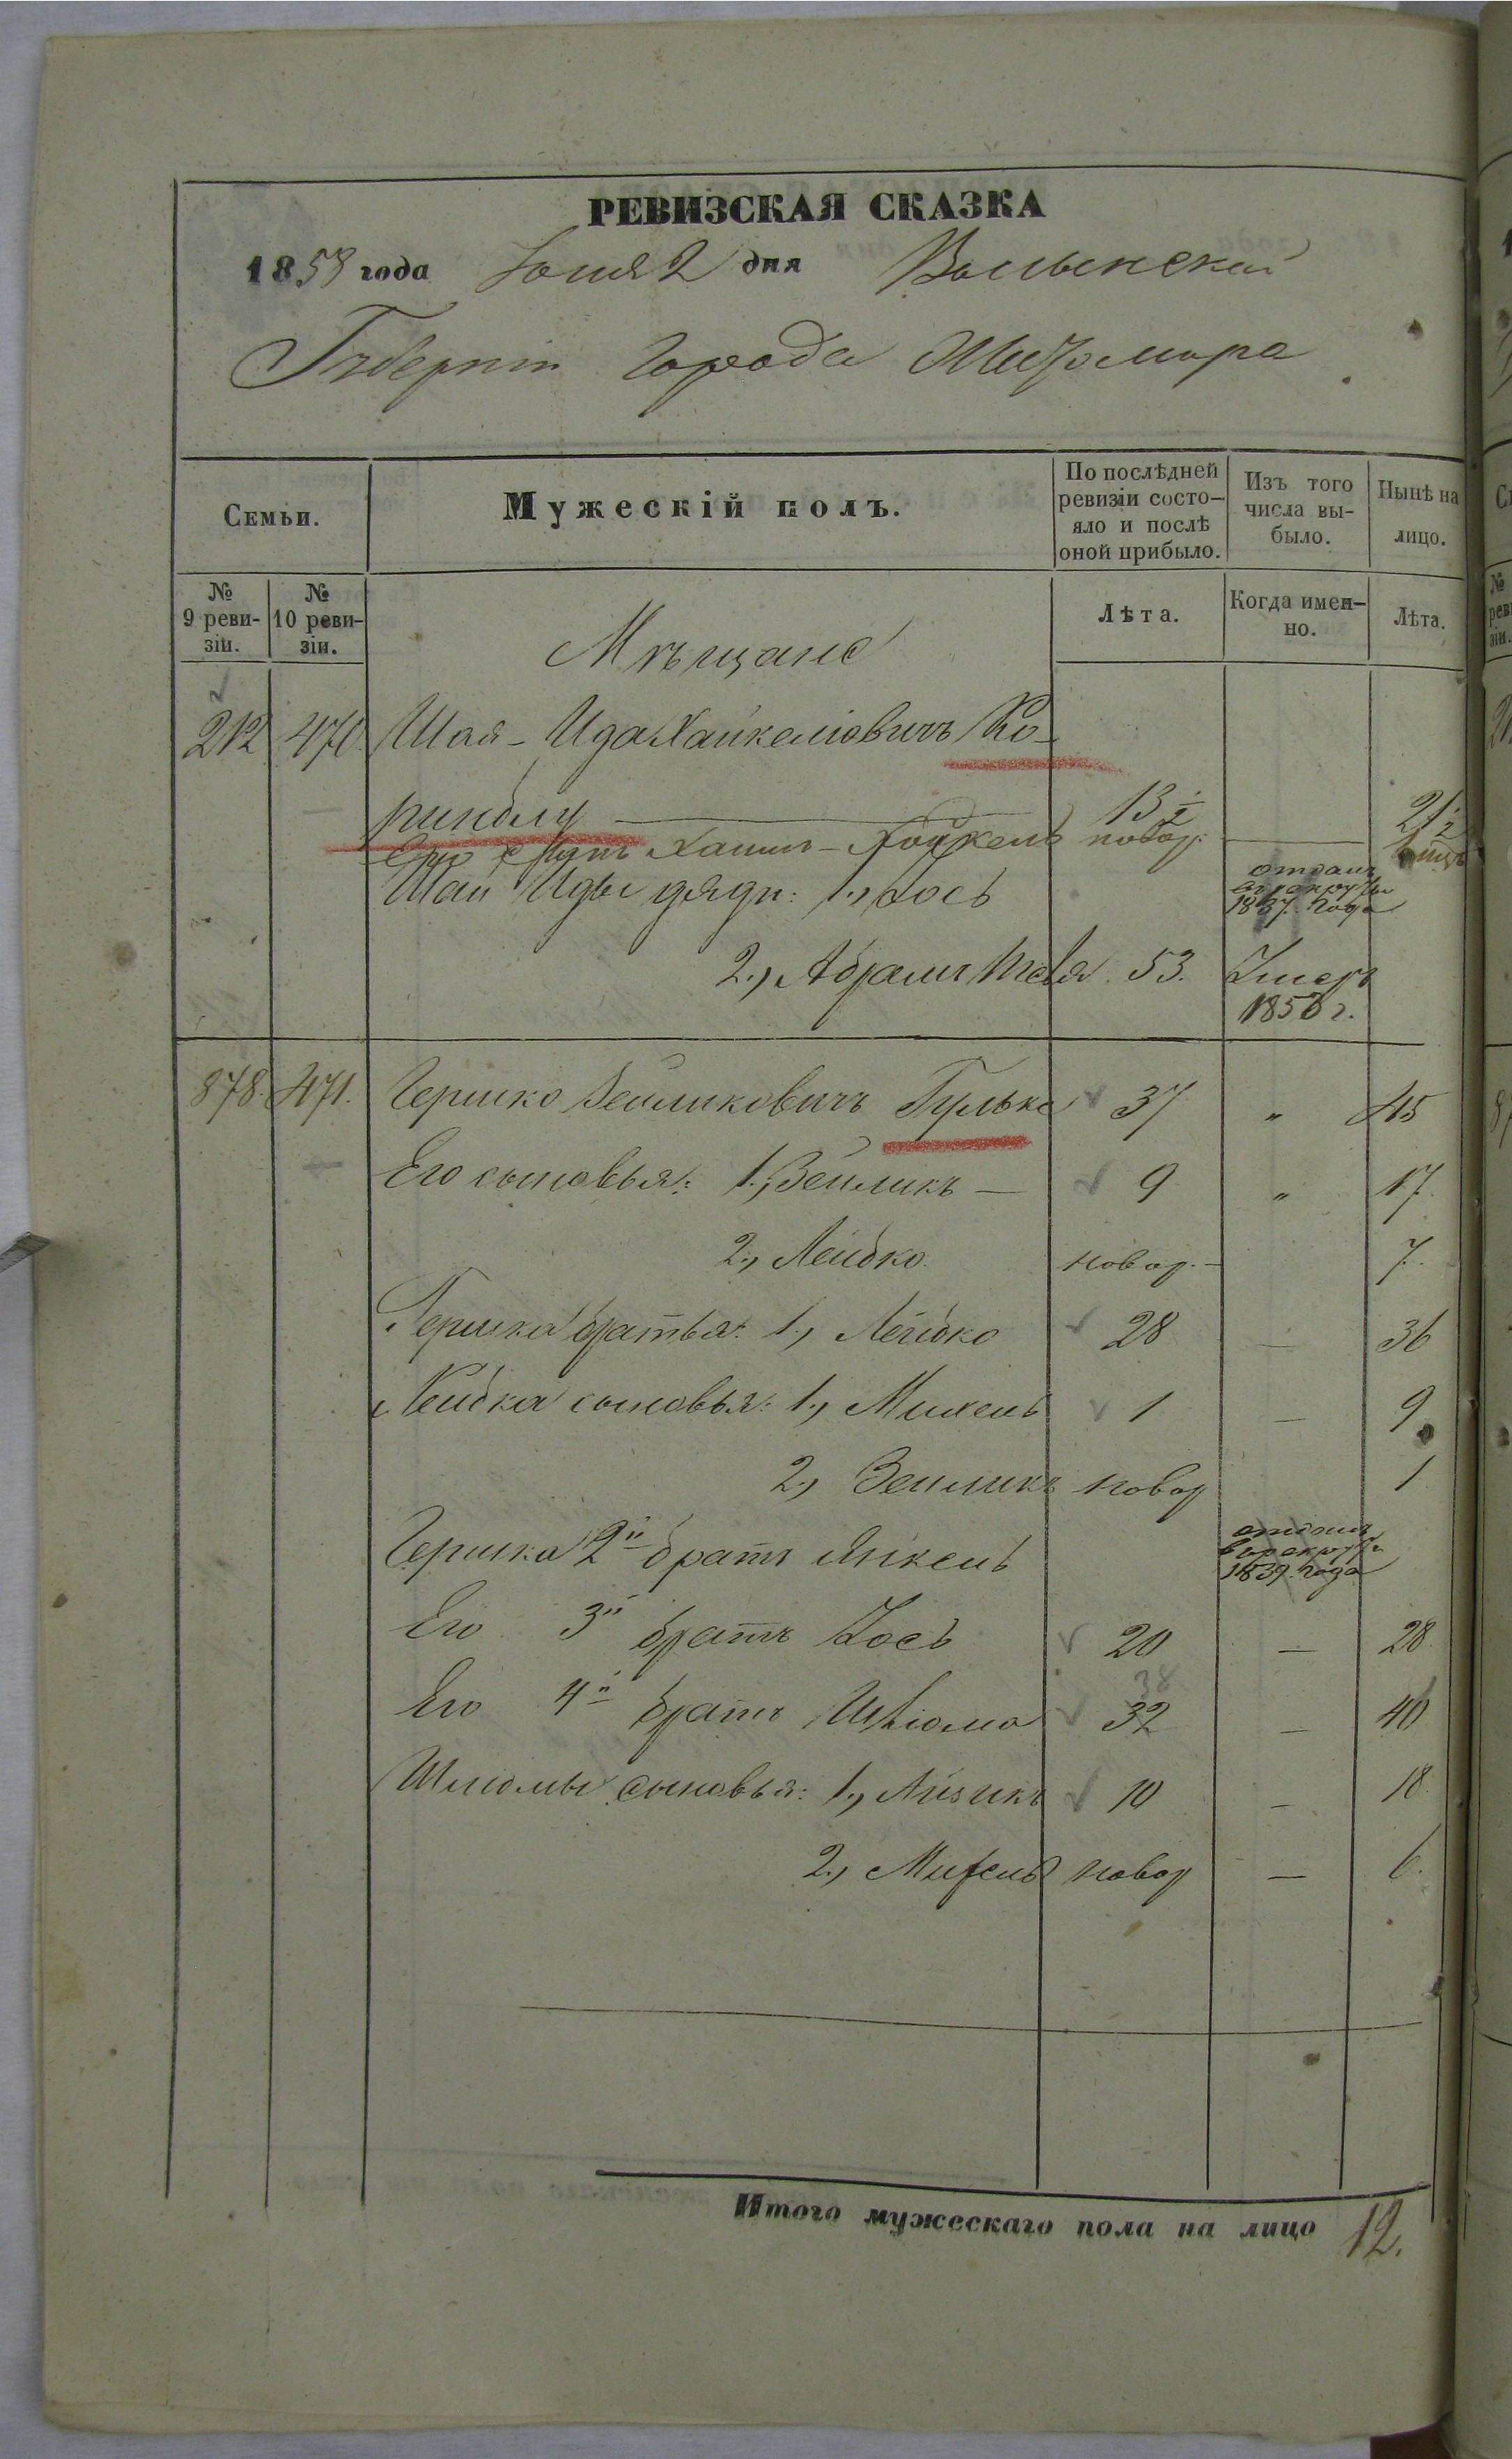 РЕВИЗСКАЯ СКАЗКА
1858 года Юня 2 дня Волынской
Губерніи города Житомира
Семьи.
Мужескій полъ.
По послѣдней ревизіи состо-
яло и послѣ
оной прибыло.
Изъ того
числа вы-
было.
Нынѣ на
лицо.
№
9 реви-
зіи.
№
10 реви-
зіи.
Лѣта.
Когда имен-
но.
Лѣта.
Мѣщане
212 470 Шая-Ида Хайкелювичъ Ко-
ринблу 13½ 21½
Его сынъ Хаимъ-Хайкель новор.
Шаи Иды дяди: 1., Іось отданъ въ рекруты 1837. года
2., Абрамъ 53. Умеръ 1850 г.
878. 471. Гершко Зейликовичъ Гулька 37 " 45
Его сыновья: 1., Зейликъ — 9 " 17.
2., Лейбко новор. - 7.
Гершка братья: 1., Лейбко 28 — 36
Лейбка сыновья: 1., Михель 1 — 9
2., Зейликъ новор 1
Гершка 2й братъ Янкель отданъ в рекруты 1839. года
Его 3й братъ Іось 20 — 28.
38
Его 4й братъ Шліома 32 — 40
Шліомы сыновья: 1., Айзикъ 10 — 18
2., Михель новор — 6.
Итого мужескаго пола на лицо 12.